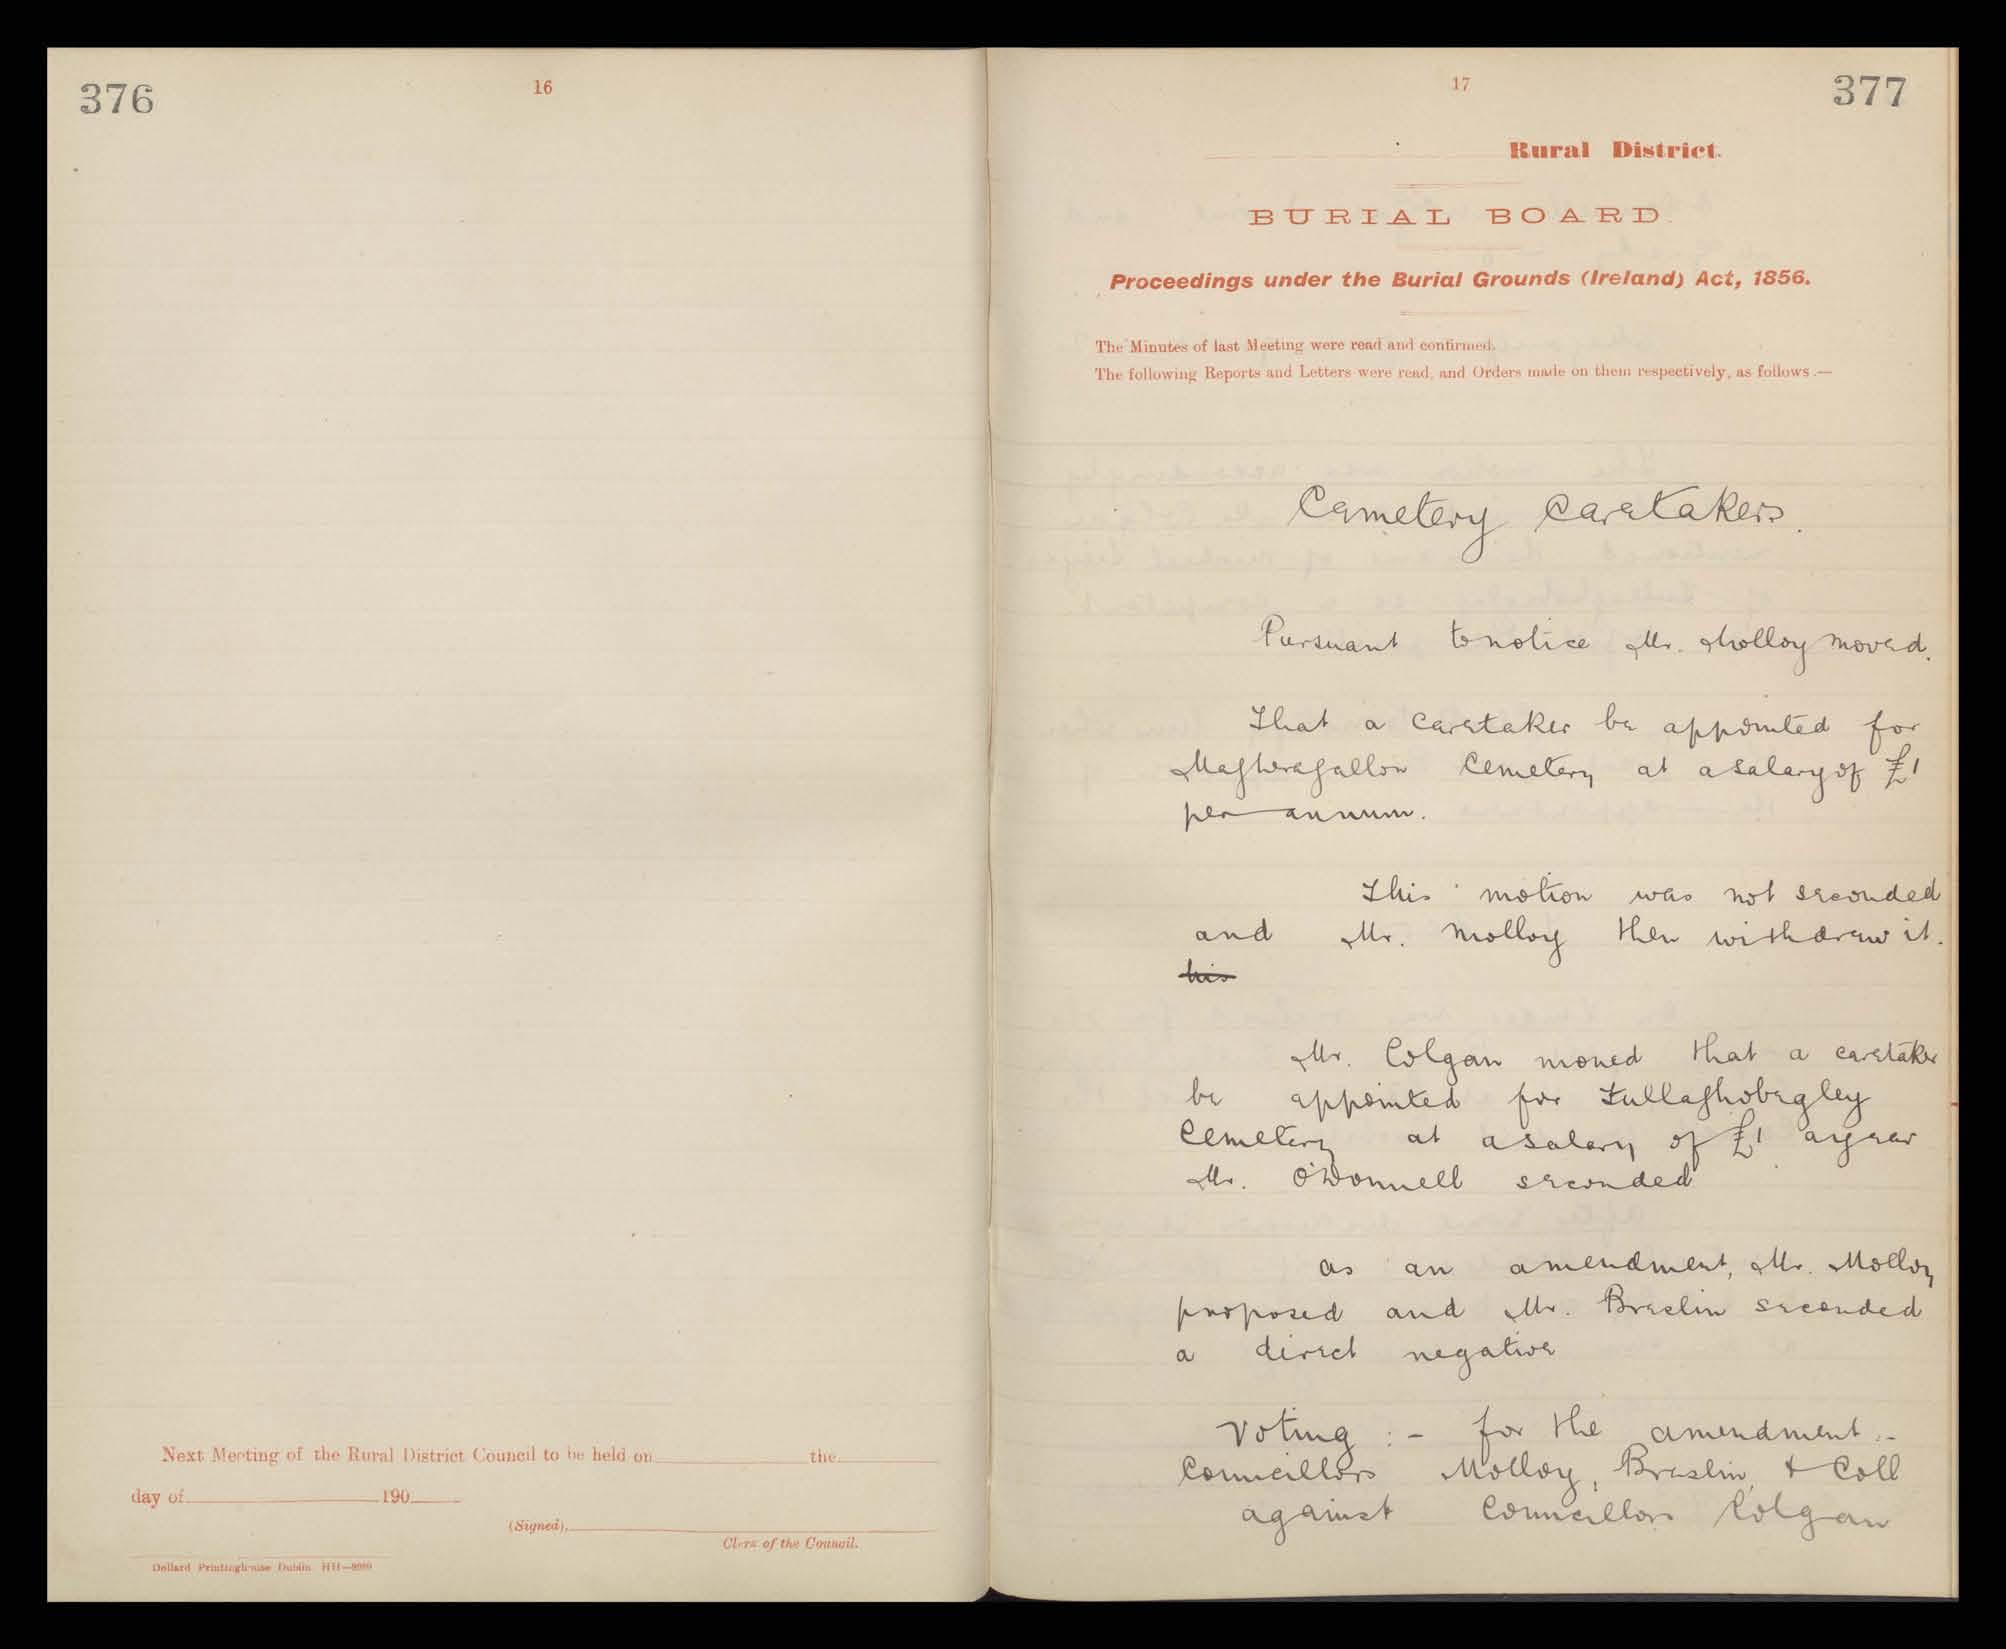 376
16
Next Meeting of the Rural District Council to be held on the
day of 190
(Signed),
Clerk of the Council.
Dollard Printinghouse Dublin HH—8989
17
377
Rural District.
BURIAL BOARD.
Proceedings under the Burial Grounds (Ireland) Act, 1856.
The Minutes of last Meeting were read and confirmed.
The following Reports and Letters were read, and Orders made on them respectively, as follows :—
Cemetery Caretakers.
Pursuant to notice Mr. Molloy moved.
That a caretaker be appointed for
Magheragallon Cemetery at a salary of £1
per annum.
This motion was not seconded
and Mr. Molloy then withdrew it.
his
Mr. Colgan moved that a caretaker
be appointed for Tullaghobegley
Cemetery at a salary of £1 a year
Mr. O'Donnell seconded
as an amendment, Mr. Molloy
proposed and Mr. Breslin seconded
a direct negative
Voting :- for the amendment :-
Councillors Molloy, Breslin, & Coll
against Councillors Colgan